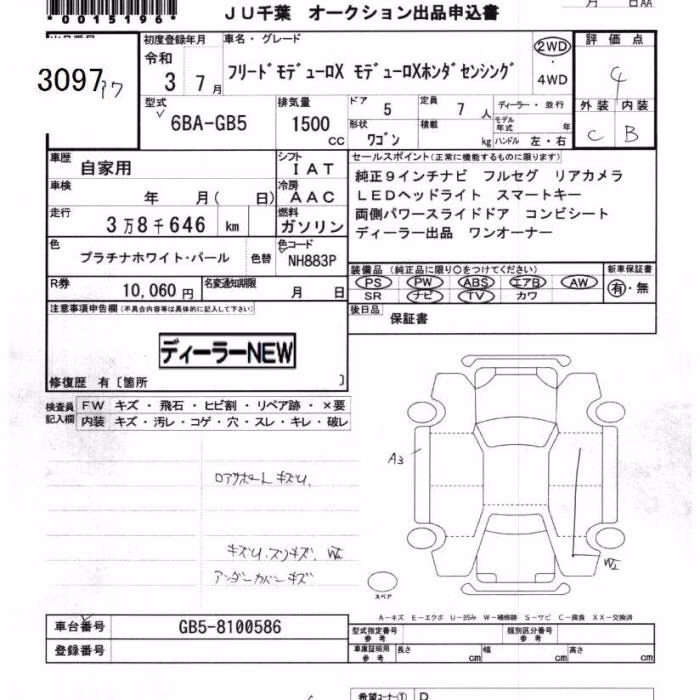 *0015196*
JU千葉 オークション出品申込書
月 日AA
3097
初度登録年月
令和
3 7 月
車名・グレード
フリードモデューロX モデューロXホンダセンシング
2WD
・
4WD
評価点
4
外装 内装
C B
型式
6BA-GB5
排気量
1500
cc
ドア 5
定員 7 人
ディーラー・並行
モデル年式 年
形状 ワゴン
積載 kg
ハンドル 左・右
車歴 自家用
シフト IAT
車検 年 月( 日)
冷房 AAC
走行 3万8千646 km
燃料 ガソリン
色 プラチナホワイト・パール 色替
色コード NH883P
R券 10,060 円
名変通知期限 月 日
セールスポイント(正常に機能するものに限ります)
純正9インチナビ フルセグ リアカメラ
LEDヘッドライト スマートキー
両側パワースライドドア コンビシート
ディーラー出品 ワンオーナー
装備品 (純正品に限り○をつけてください)
PS PW ABS エアB AW
SR ナビ TV カワ
新車保証書
有・無
後日品 保証書
注意事項申告欄(不具合内容等は具体的に記入して下さい)
ディーラーNEW
修復歴 有〔箇所 〕
検査員記入欄
FW キズ・飛石・ヒビ割・リペア跡・×要
内装 キズ・汚レ・コゲ・穴・スレ・キレ・破レ
A3
キズU、スリキズ、
アンダーカバーキズ
スペア
A-キズ E-エクボ U-凹み W-補修跡 S-サビ C-腐食 XX-交換済
車台番号 GB5-8100586
登録番号
型式指定番号参考
類別区分番号参考
車庫証明用参考 長さ cm 幅 cm 高さ cm
希望コーナー① D